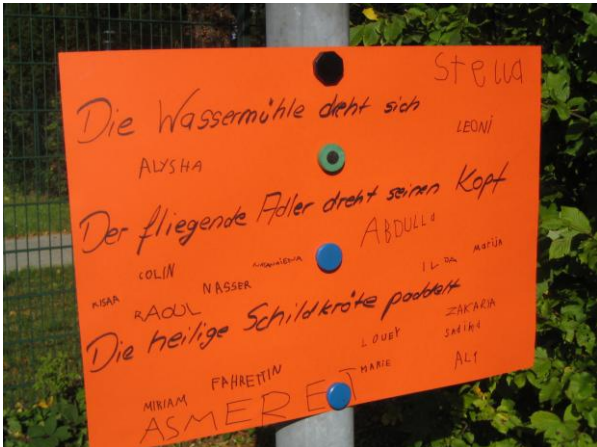 Stella
Die Wassermühle dreht sich
LEONI
ALYSHA
Der fliegende Adler dreht seinen Kopf
ABDULLO
COLIN
Marija
ILDA
NASSER
RAOUL
Die heilige Schildkröte paddelt
ZAKARIA
LOUEY
Sadika
MARIE
ALI
FAHRETTIN
MIRIAM
ASMERET